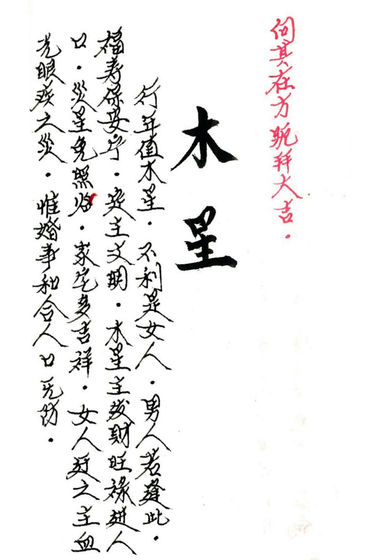 向其在方貌拜大吉。
木星
行年值木星。不利是女人。男人若逢此。
福寿保安宁。主文明。木星主发财旺禄进人
口。災星免照临。家宅多吉祥。女人之主血
光眼疾之災。惟婚事和合人口无妨。